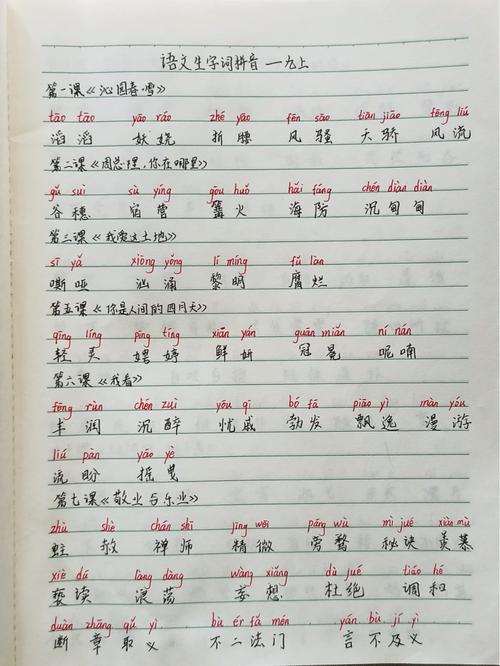 语文生字词拼音 — 九上
第一课《沁园春·雪》
tāo tāo yāo ráo zhé yāo fēng sāo tiān jiāo fēng liú
滔滔 妖娆 折腰 风骚 天骄 风流
第二课《周总理,你在哪里》
gǔ suì sù yíng gōu huǒ hǎi fáng chén diàn diàn
谷穗 宿营 篝火 海防 沉甸甸
第三课《我爱这土地》
sī yǎ xiōng yǒng lí míng fǔ làn
嘶哑 汹涌 黎明 腐烂
第五课《你是人间的四月天》
qīng líng pīng tíng xiān yán guān miǎn ní nán
轻灵 娉婷 鲜妍 冠冕 呢喃
第六课《我看》
fēng rùn chén zuì yōu qī bó fā piāo yì màn yóu
丰润 沉醉 忧戚 勃发 飘逸 漫游
liú pàn yáo yè
流盼 摇曳
第七课《敬业与乐业》
zhù shè chán shī jīng wēi páng wù mì jué xiàn mù
赦 禅师 精微 旁骛 秘诀 羡慕
xiè dú làng dàng wàng xiǎng dù jué tiáo hé
亵读 浪荡 妄想 杜绝 调和
duàn zhāng qǔ yì bù èr fǎ mén yán bù jí yì
断章取义 不二法门 言不及义